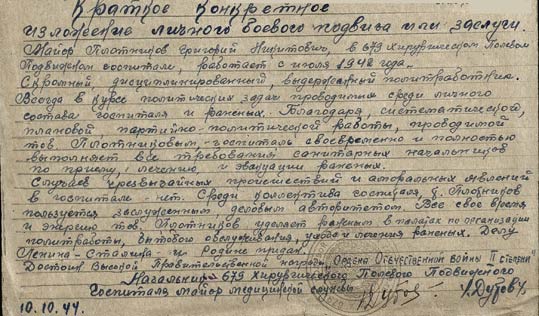 Краткое конкретное
изложение личного боевого подвига или заслуги.
Майор Плотников Григорий Никитович, в 679 хирургическом Полевом
Подвижном госпитале, работает с июля 1942 года.
Скромный, дисциплинированный, выдержанный политработник.
Всегда в курсе политических задач проводимых среди личного
состава госпиталя и раненых. Благодаря, систематической,
плановой, партийно-политической работы, проводимой
тов Плотниковым, госпиталь своевременно и полностью
выполняет все требования санитарных начальников
по приему, лечению, и эвакуации раненых.
Случаев чрезвычайных происшествий и аморальных явлений
в госпитале - нет. Среди коллектива госпиталя, т. Плотников
пользуется заслуженным, деловым авторитетом. Все свое время
и энергию тов Плотников уделяет раненым в палатах по организации
политработы, бытового обслуживания, ухода и лечения раненых. Делу
Ленина-Сталина и Родине предан.
Достоин Высокой Правительственной награды "Ордена Отечественной войны II степени"
Начальник 679 Хирургического Полевого Подвижного
Госпиталя майор медицинской службы Дубов
10.10.44.